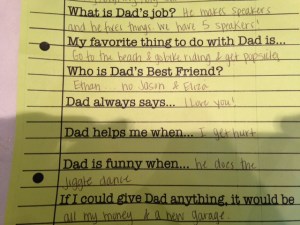 What is Dad's job? He makes speakers
and he lives things we have 5 speakers!
My favorite thing to do with Dad is...
Go to the beach & go bike riding & get popsicles
Who is Dad's Best Friend?
Ethan no Jason & Eliza
Dad always says... I love you!
Dad helps me when... I get hurt
Dad is funny when... he does the
jiggle dance
If I could give Dad anything, it would be
all my money & a new garage